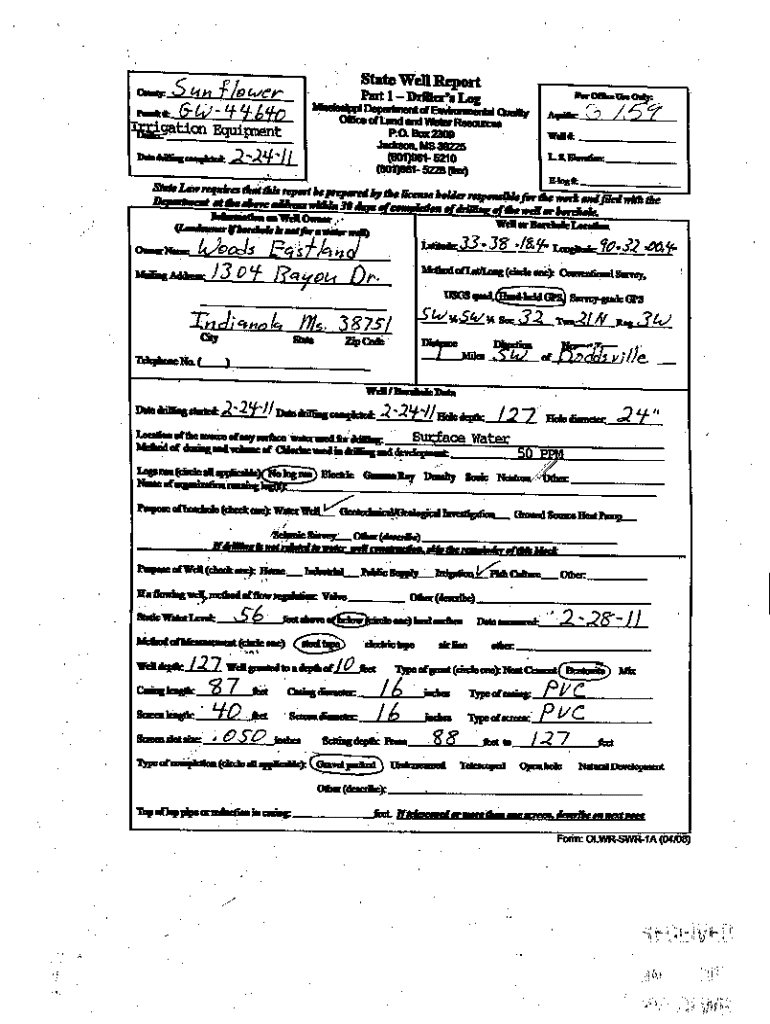 State Well Report
Part 1 – Driller's Log
Mississippi Department of Environmental Quality
Office of Land and Water Resources
P.O. Box 2309
Jackson, MS 39225
(601)961- 5210
(601)961- 5228 (fax)
County: Sunflower
Permit #: GW-44640
Irrigation Equipment
Date drilling completed: 2-24-11
For Office Use Only:
Aquifer: G 159
Well #:
L. S. Elevation:
E-log #:
State Law requires that this report be prepared by the license holder responsible for the work and filed with the
Department at the above address within 30 days of completion of drilling of the well or borehole.
Information on Well Owner
(Landowner if borehole is not for a water well)
Owner Name: Woods Eastland
Mailing Address: 1304 Bayou Dr.
Indianola Ms. 38751
City State Zip Code
Telephone No. ( )
Well or Borehole Location
Latitude: 33-38-18.4 Longitude: 90-32-00.4
Method of Lat/Long (circle one): Conventional Survey,
USGS quad, Hand-held GPS, Survey-grade GPS
SW ¼ SW ¼ Sec. 32 Twn. 21N Rng. 3W
Distance Direction Nearest Town
1 Miles SW of Doddsville
Well / Borehole Data
Date drilling started: 2-24-11 Date drilling completed: 2-24-11 Hole depth: 127 Hole diameter: 24"
Location of the source of any surface water used for drilling: Surface Water
Method of dosing and volume of Chlorine used in drilling and development: 50 PPM
Logs run (circle all applicable): No log run Electric Gamma Ray Density Sonic Neutron Other:
Name of organization running log(s):
Purpose of borehole (check one): Water Well ✓ Geotechnical/Geological Investigation Ground Source Heat Pump
Seismic Survey Other (describe)
If drilling is not related to water well construction, skip the remainder of this block
Purpose of Well (check one): Home Industrial Public Supply Irrigation ✓ Fish Culture Other:
If a flowing well, method of flow regulation: Valve Other (describe)
Static Water Level: 56 feet above or below (circle one) land surface Date measured: 2-28-11
Method of Measurement (circle one) steel tape electric tape air line other:
Well depth: 127 Well grouted to a depth of 10 feet Type of grout (circle one): Neat Cement Bentonite Mix
Casing length: 87 feet Casing diameter: 16 inches Type of casing: PVC
Screen length: 40 feet Screen diameter: 16 inches Type of screen: PVC
Screen slot size: .050 inches Setting depth: From 88 feet to 127 feet
Type of completion (circle all applicable): Gravel packed Underreamed Telescoped Open hole Natural Development
Other (describe):
Top of lap pipe or reduction in casing: feet. If telescoped or more than one screen, describe on next page
Form: OLWR-SWR-1A (04/08)